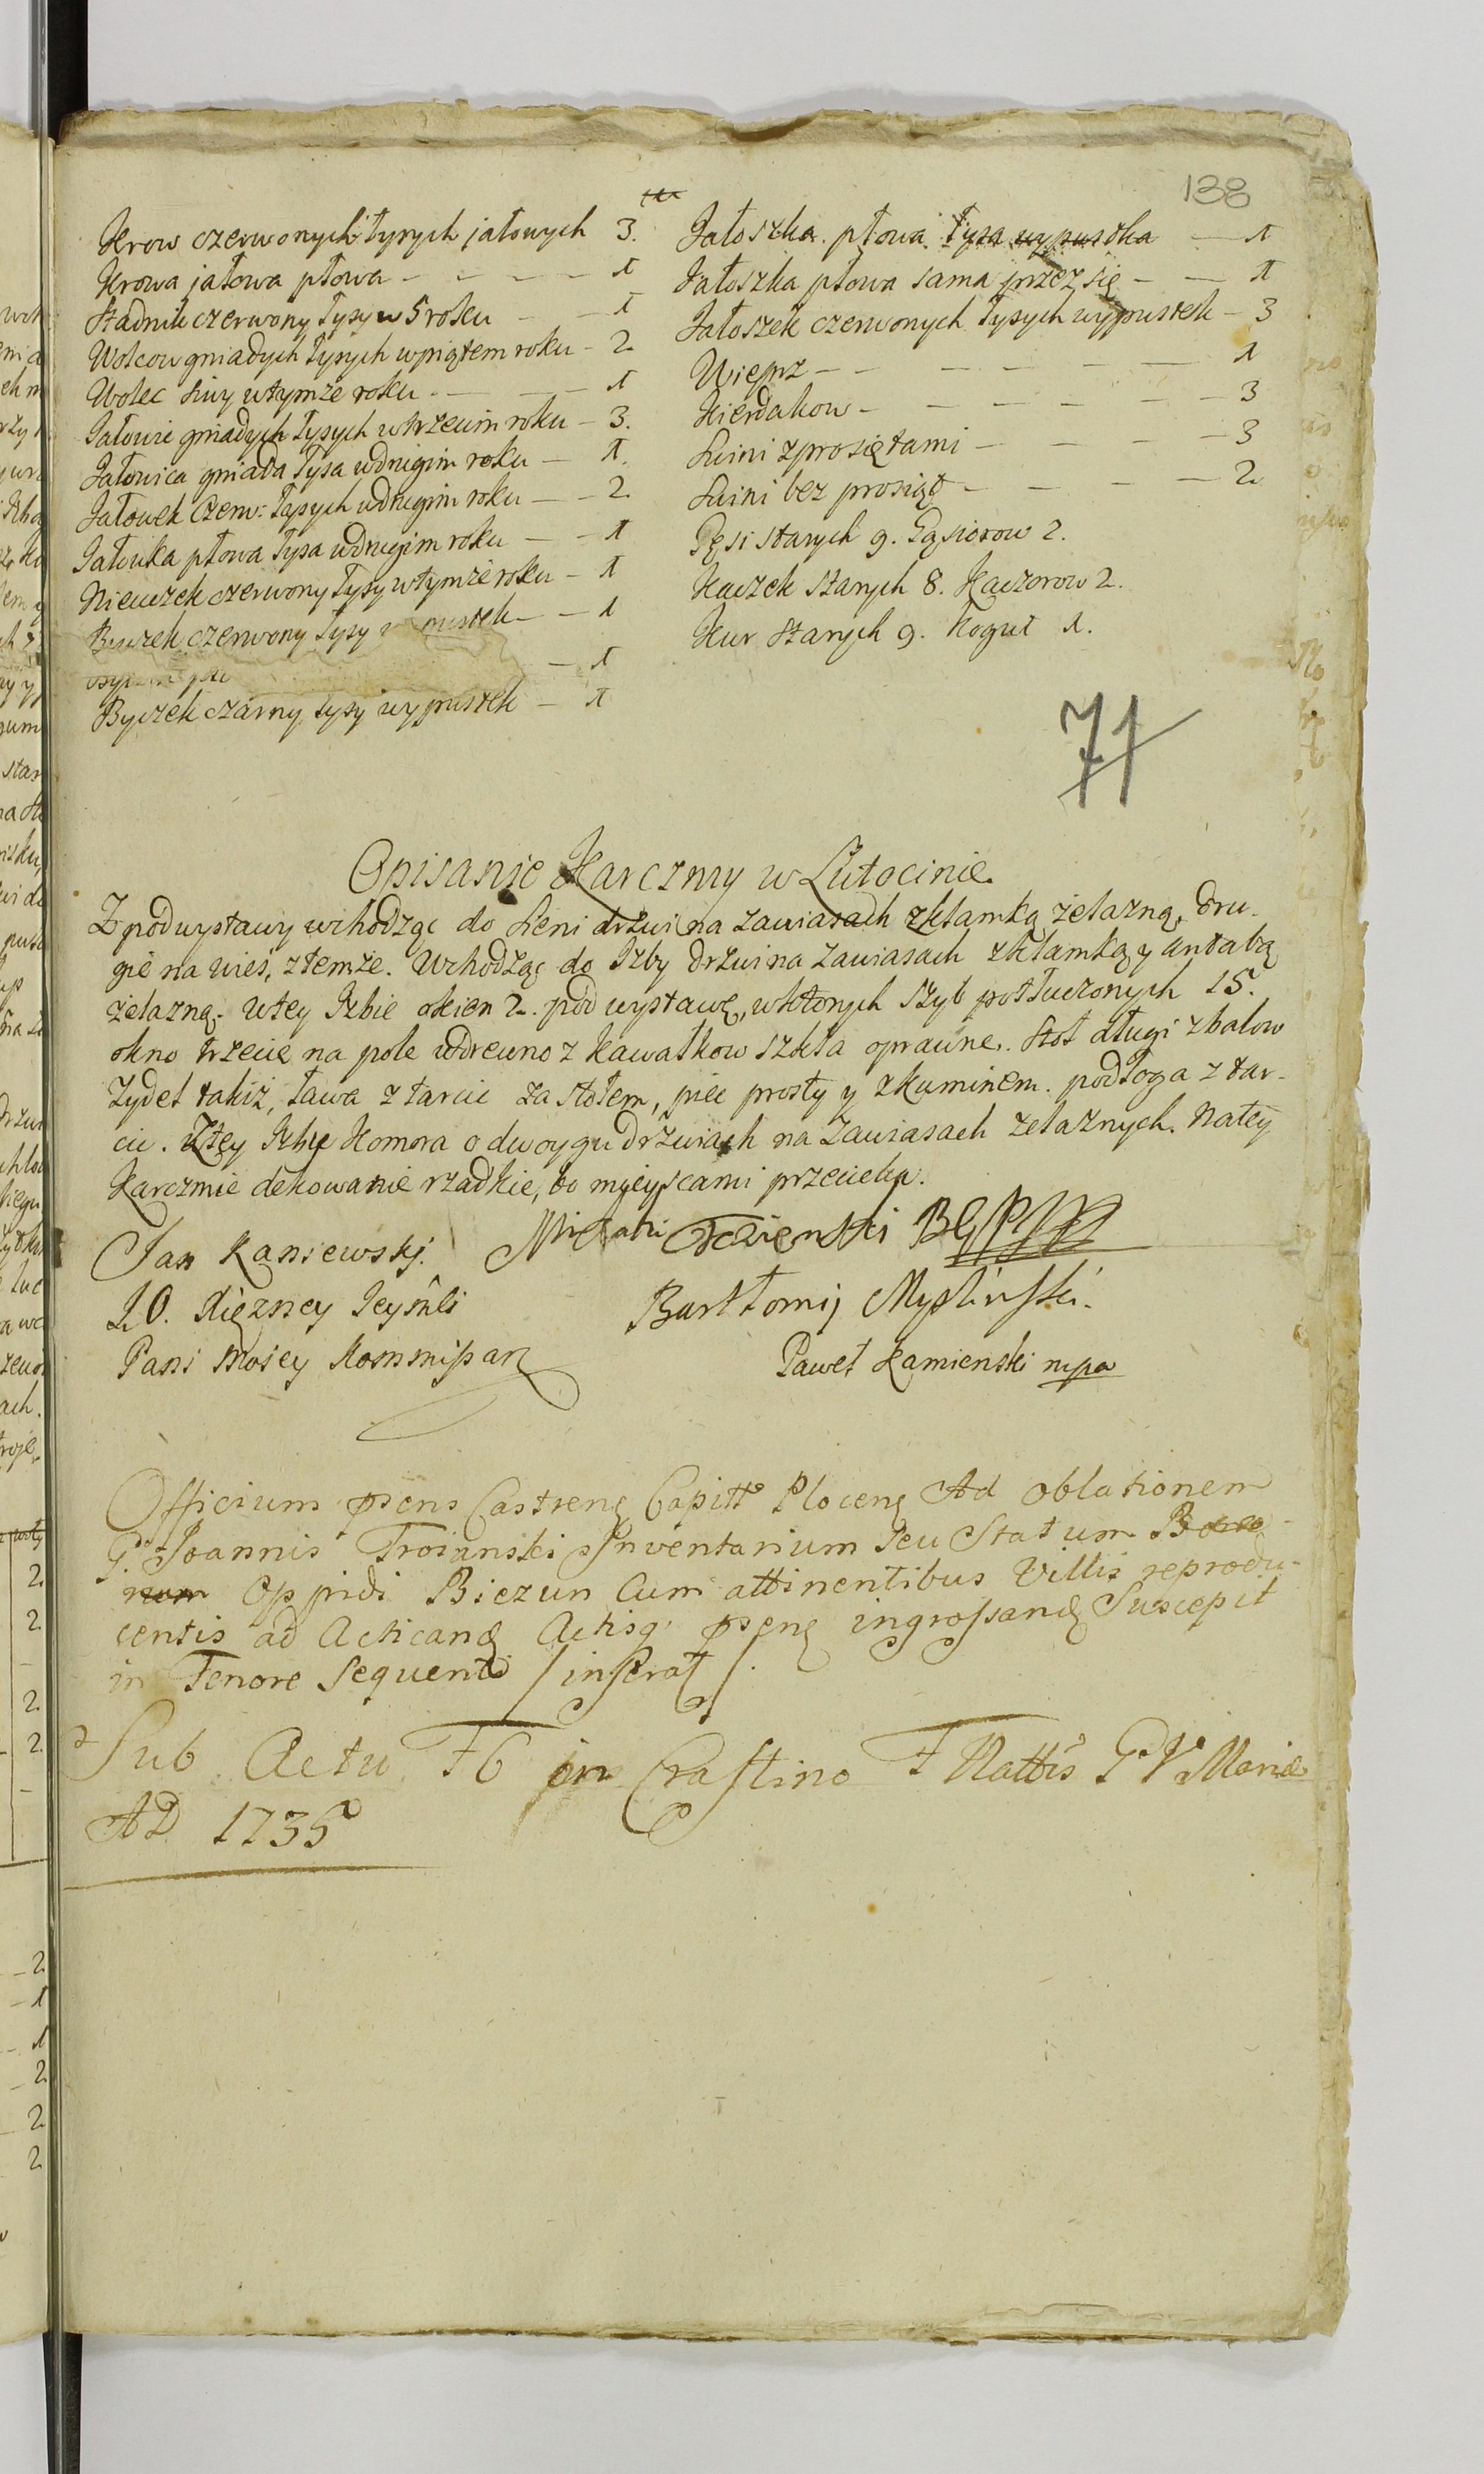 138
Krow czerwonych łysych jałowych 3.
Krowa jałowa płowa - - - - - 1
Stadnik czerwony łysy w 5 roku - - 1
Wolcow gniadych łysych w piątem roku - 2.
Wolec siwy w tymże roku - - - 1
Jałowic gniadych łysych w trzecim roku - 3.
Jałowica gniada łysa w drugim roku - 1.
Jałowek Czerw: łysych w drugim roku - - 2.
Jałowka płowa łysa w drugim roku - - 1
Nieuczek czerwony łysy w tymże roku - 1
Byczek czerwony łysy - - 1
- 1
Byczek czarny łysy wypustek - 1
Jałoszka płowa łysa wypustka - 1
Jałoszka płowa sama przez się - - 1
Jałoszek czerwonych łysych wypustek - 3
Wieprz - - - - - - 1
Kierdakow - - - - - - 3
Swini z prosiętami - - - - 3
Swini bez prosiąt - - - - 2
Gęsi starych 9. Gąsiorow 2.
Kaczek starych 8. Kaczorow 2.
Kur starych 9. Kogut 1.
71
Opisanie Karczmy w Lutocinie.
Z pod wystawy wchodząc do Sieni drzwi na zawiasach z klamką żelazną, dru-
gie na wieś, z temże. Wchodząc do Izby drzwi na zawiasach z klamką y antabą
żelazną. w tey Izbie okien 2. pod wystawę, w ktorych szyb potłuczonych 15.
okno trzecie na pole w drewno z kawałkow szkła oprawne. Stoł długi z balow
Zydel takiż, ława z tarcic za stołem, piec prosty y z kuminem. podłoga z tar-
cic. Z tey Izby Komora o dwoygu drzwiach na zawiasach żelaznych. Na tey
Karczmie dekowanie rzadkie, bo mieyscami przecieka.
Jan Kaniewski.
J.O. Xiężney Jeymści
Pani Mościey Kommissarz
Bartłomiy Mysliński.
Paweł Kamienski mpa
Officium pſens Castrenę Capitt Plocenę Ad oblationem
G. Joannis Troianski Inventarium seu Statum Bono-
rum Oppidi Biezun Cum attinentibus Villis reprodu-
centis ad Acticandę Actisq. pſenę ingrossandę Suscepit
in Tenore Sequenti / inserat /.
Sub Actu F6 in Crastino F Nattis G V Mariæ
AD 1735